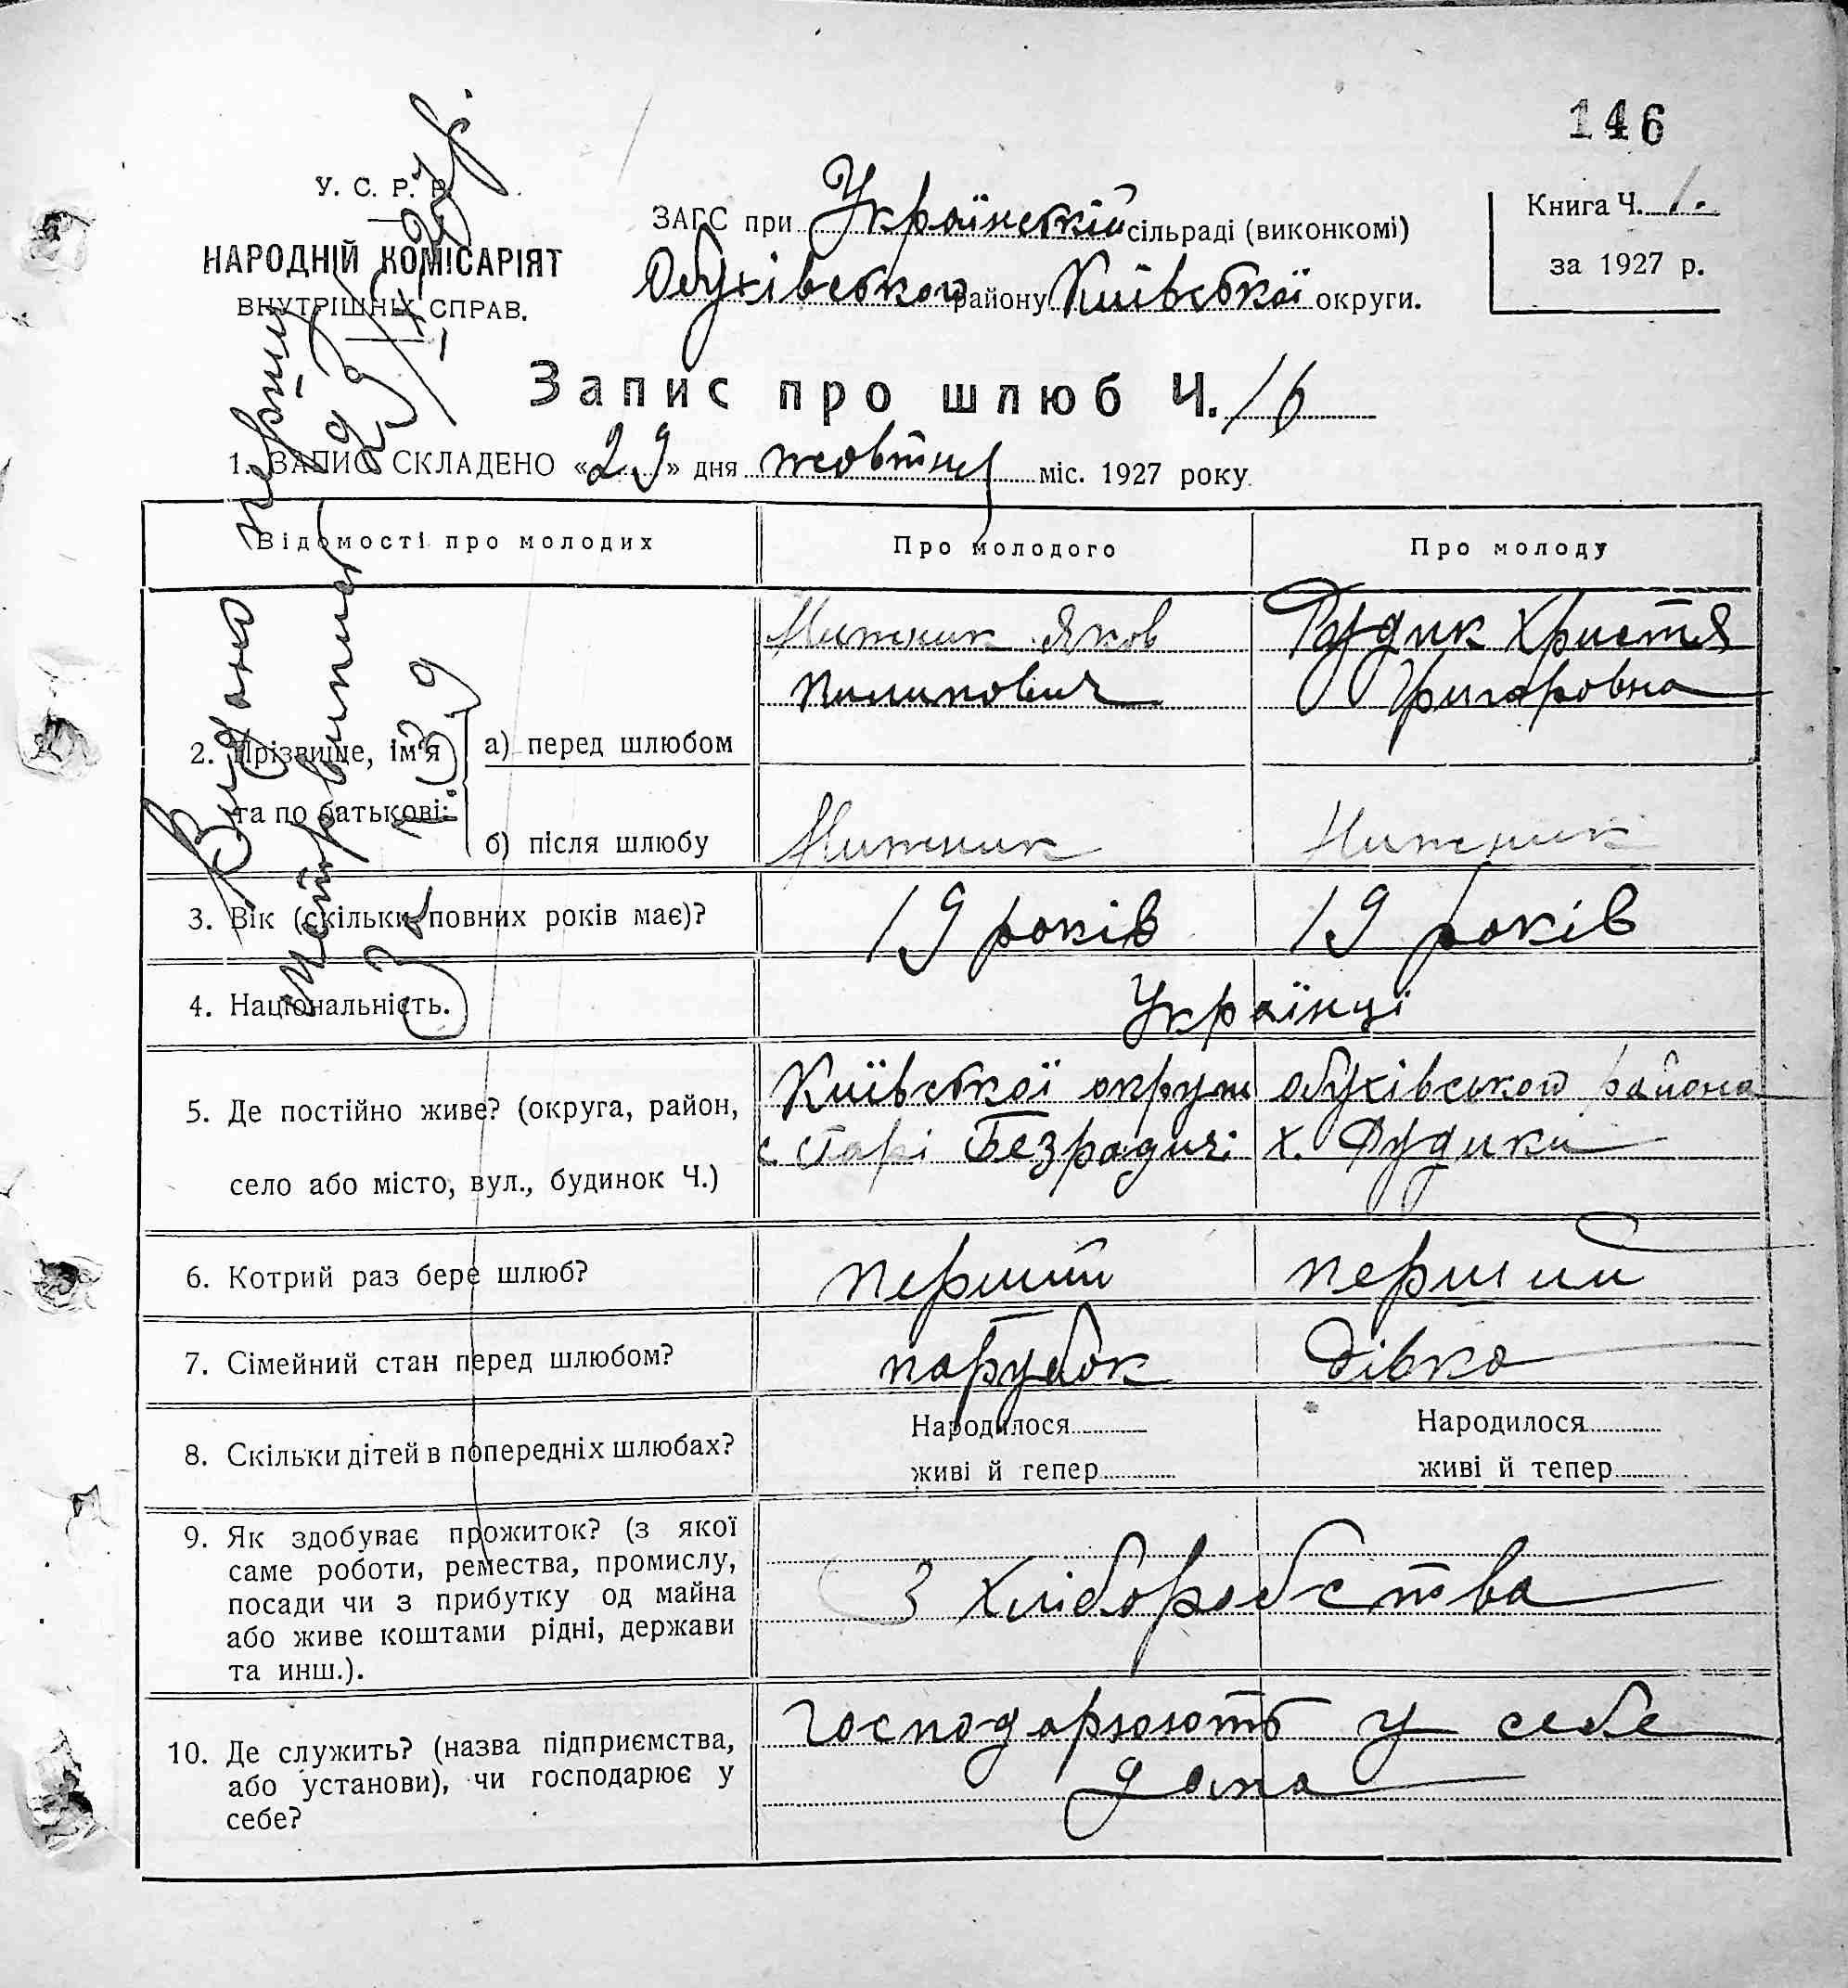 146
У. С. Р. Р.
НАРОДНІЙ КОМІСАРІЯТ
ВНУТРІШНІХ СПРАВ.
ЗАГС при Українській сільраді (виконкомі)
Обухівського району Київської округи.
Книга Ч. 1.
за 1927 р.
Запис про шлюб Ч. 16
1. ЗАПИС СКЛАДЕНО «29» дня жовтня міс. 1927 року
Видано
Відомості про молодих Про молодого Про молоду
Нижник Яков Дудик Христя
Пилипович Григоровна
2. Прізвище, ім'я та по батькові:
а) перед шлюбом
б) після шлюбу Нижник Нижник
3. Вік (скільки повних років має)? 19 років 19 років
4. Національність. Українці
5. Де постійно живе? (округа, район,
село або місто, вул., будинок Ч.)
Київської округи Обухівського района
с. Старі Безрадичі х. Дудики
6. Котрий раз бере шлюб? перший перший
7. Сімейний стан перед шлюбом? парубок дівка
8. Скільки дітей в попередніх шлюбах?
Народилося Народилося
живі й тепер живі й тепер
9. Як здобуває прожиток? (з якої
саме роботи, ремества, промислу,
посади чи з прибутку од майна
або живе коштами рідні, держави
та инш.).
З хліборобства
10. Де служить? (назва підприємства,
або установи), чи господарює у
себе?
господарюють у себе
дома